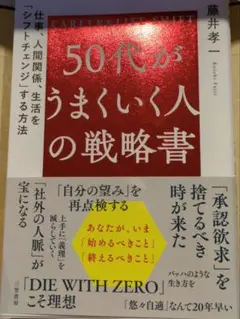 CAREER & LIFE SHIFT
藤井孝一
Koichi Fujii
50代が
うまくいく人
の戦略書
仕事、人間関係、生活を
「シフトチェンジ」する方法
「承認欲求」を
捨てるべき
時が来た
バッハのような
生き方を
「悠々自適」なんて20年早い
「自分の望み」を
再点検する
あなたが、いま
「始めるべきこと」
「終えるべきこと」
「DIE WITH ZERO」
こそ理想
上手に「義理」を
減らしていく
「社外の人脈」が
宝になる
三笠書房